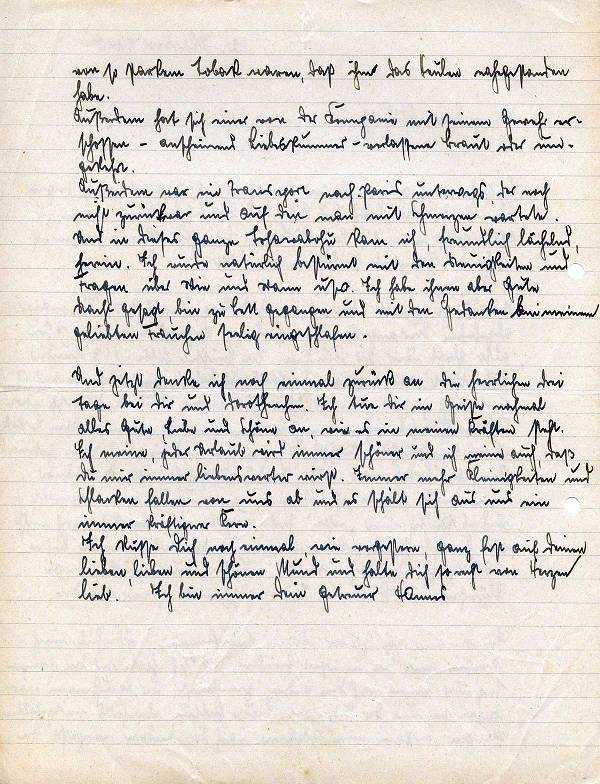 von so starkem Tobak waren, daß ihm das Heulen nahegestanden
habe.
Außerdem hat sich einer von der Kompanie mit seinem Gewehr er-
schossen - anscheinend Liebeskummer - verlassene Braut oder um-
gekehrt.
Außerdem war ein Transport nach Paris unterwegs, der noch
nicht zurück war und auf den man mit Schmerzen wartete.
Und in dieses ganze Tohuwabohu kam ich, freundlich lächelnd,
herein. Ich wurde natürlich bestürmt mit den Neuigkeiten und
Fragen über Wie und Wann usw. Ich habe ihnen aber Gute
Nacht gesagt bin zu Bett gegangen und mit den Gedanken bei meinem
geliebten Frauchen seelig eingeschlafen.
Und jetzt denke ich noch einmal zurück an die herrlichen drei
Tage bei Dir und Dorothenchen. Ich tue dir im Geiste nochmal
alles Gute, Liebe und Schöne an, wie es in meinen Kräften steht.
Ich meine, jeder Urlaub wird immer schöner und ich meine auch, daß
Du mir immer liebenswerter wirst. Immer mehr Kleinigkeiten und
Schlacken fallen von uns ab und es schält sich aus uns ein
immer kräftigerer Kern.
Ich küsse Dich noch einmal, wie vorgestern, ganz fest auf Deinen
lieben, lieben und schönen Mund und halte Dich so recht von Herzen
lieb. Ich bin immer Dein getreuer Hannes